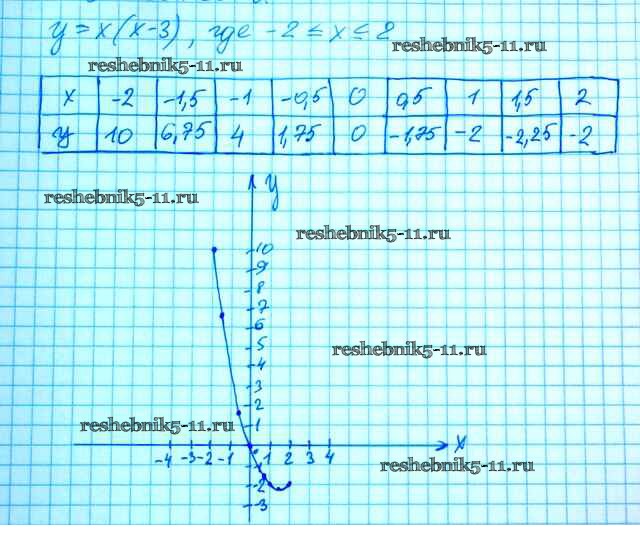 y = x(x-3), где -2 ≤ x ≤ 2
reshebnik5-11.ru
reshebnik5-11.ru
x -2 -1,5 -1 -0,5 0 0,5 1 1,5 2
y 10 6,75 4 1,75 0 -1,75 -2 -2,25 -2
y
reshebnik5-11.ru
reshebnik5-11.ru
10
9
8
7
6
5
reshebnik5-11.ru
4
3
2
reshebnik5-11.ru
1
x
-4 -3 -2 -1 1 2 3 4
reshebnik5-11.ru
-1
-2
-3